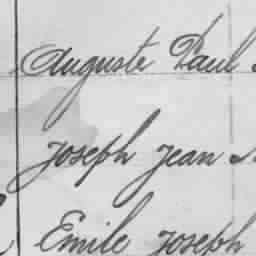 Auguste Paul
Joseph Jean
Emile Joseph